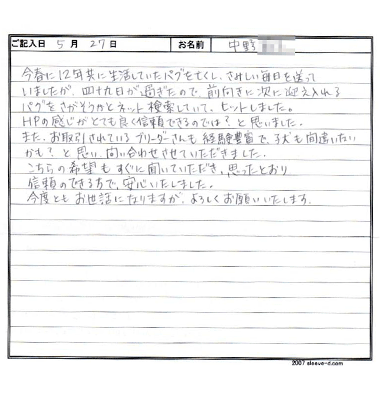 ご記入日 5 月 27 日 お名前 中野
今春に12年共に生活していたパグを亡くし、さみしい毎日を送って
いましたが、四十九日が過ぎたので、前向きに次に迎え入れる
パグをさがそうかとネット検索していて、ヒットしました。
HPの感じがとても良く信頼できるのでは？と思いました。
また、お取引されているブリーダーさんも経験豊富で、子犬も間違いない
かも？と思い、問い合わせさせていただきました。
こちらの希望もすぐに聞いていただき、思ったとおり
信頼のできる方で、安心いたしました。
今度ともお世話になりますが、よろしくお願いいたします。
2007 sleeve-d.com